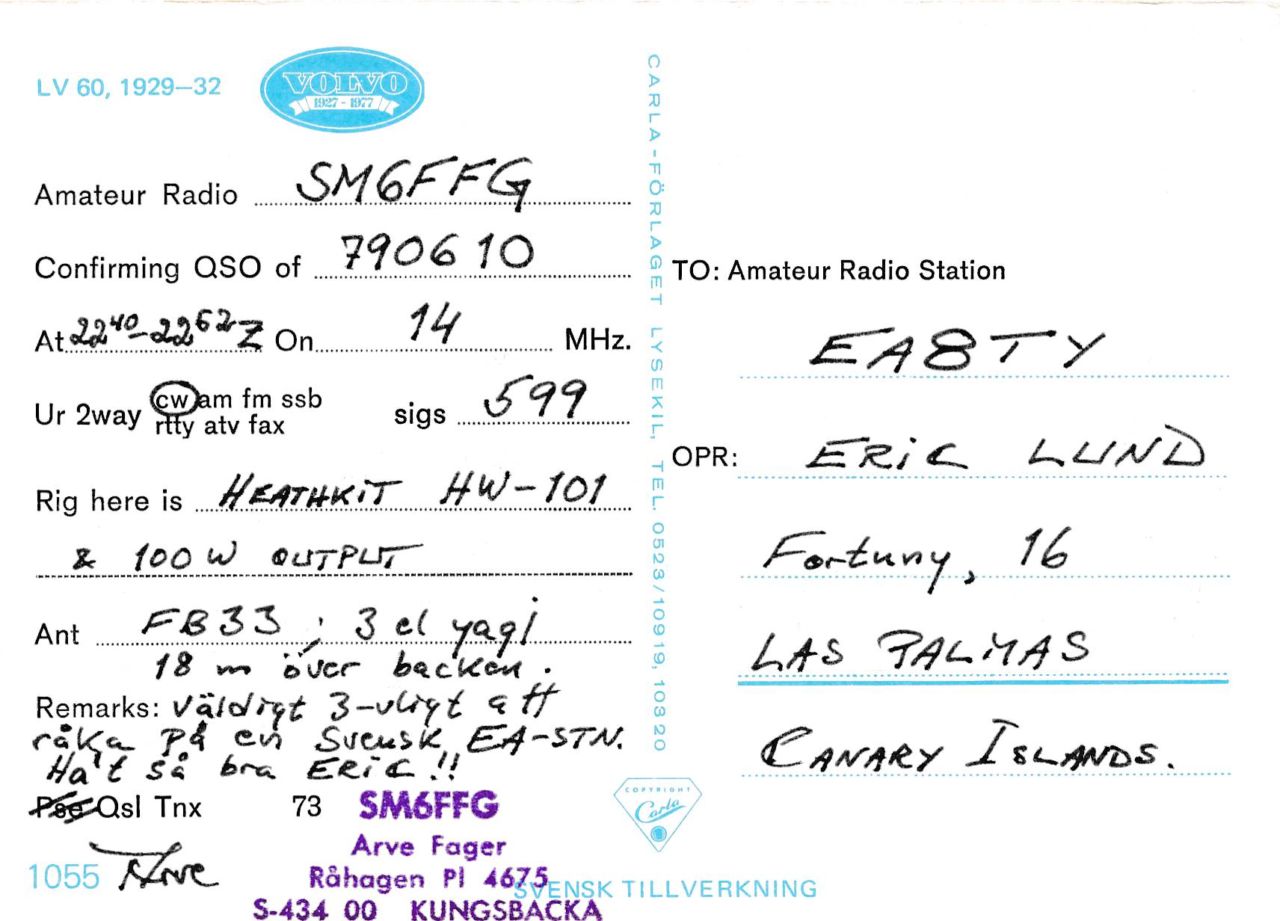 LV 60, 1929–32
VOLVO
1927 - 1977
Amateur Radio SM6FFG
Confirming QSO of 790610
At 22⁴⁰-22⁵²Z On 14 MHz.
Ur 2way cw am fm ssb
rtty atv fax
sigs 599
Rig here is HEATHKIT HW-101
& 100W OUTPUT
Ant FB33 ; 3 el yagi
18 m över backen.
Remarks: Väldigt 3-vligt att
råka på en Svensk EA-STN.
Ha't så bra ERIC!!
Pse Qsl Tnx 73 SM6FFG
Arve
Arve Fager
Råhagen Pl 4675
S-434 00 KUNGSBACKA
1055
CARLA-FÖRLAGET LYSEKIL, TEL. 0523/10919, 10320
TO: Amateur Radio Station
EA8TY
OPR: ERIC LUND
Fortuny, 16
LAS PALMAS
CANARY ISLANDS.
COPYRIGHT
Carla
SVENSK TILLVERKNING